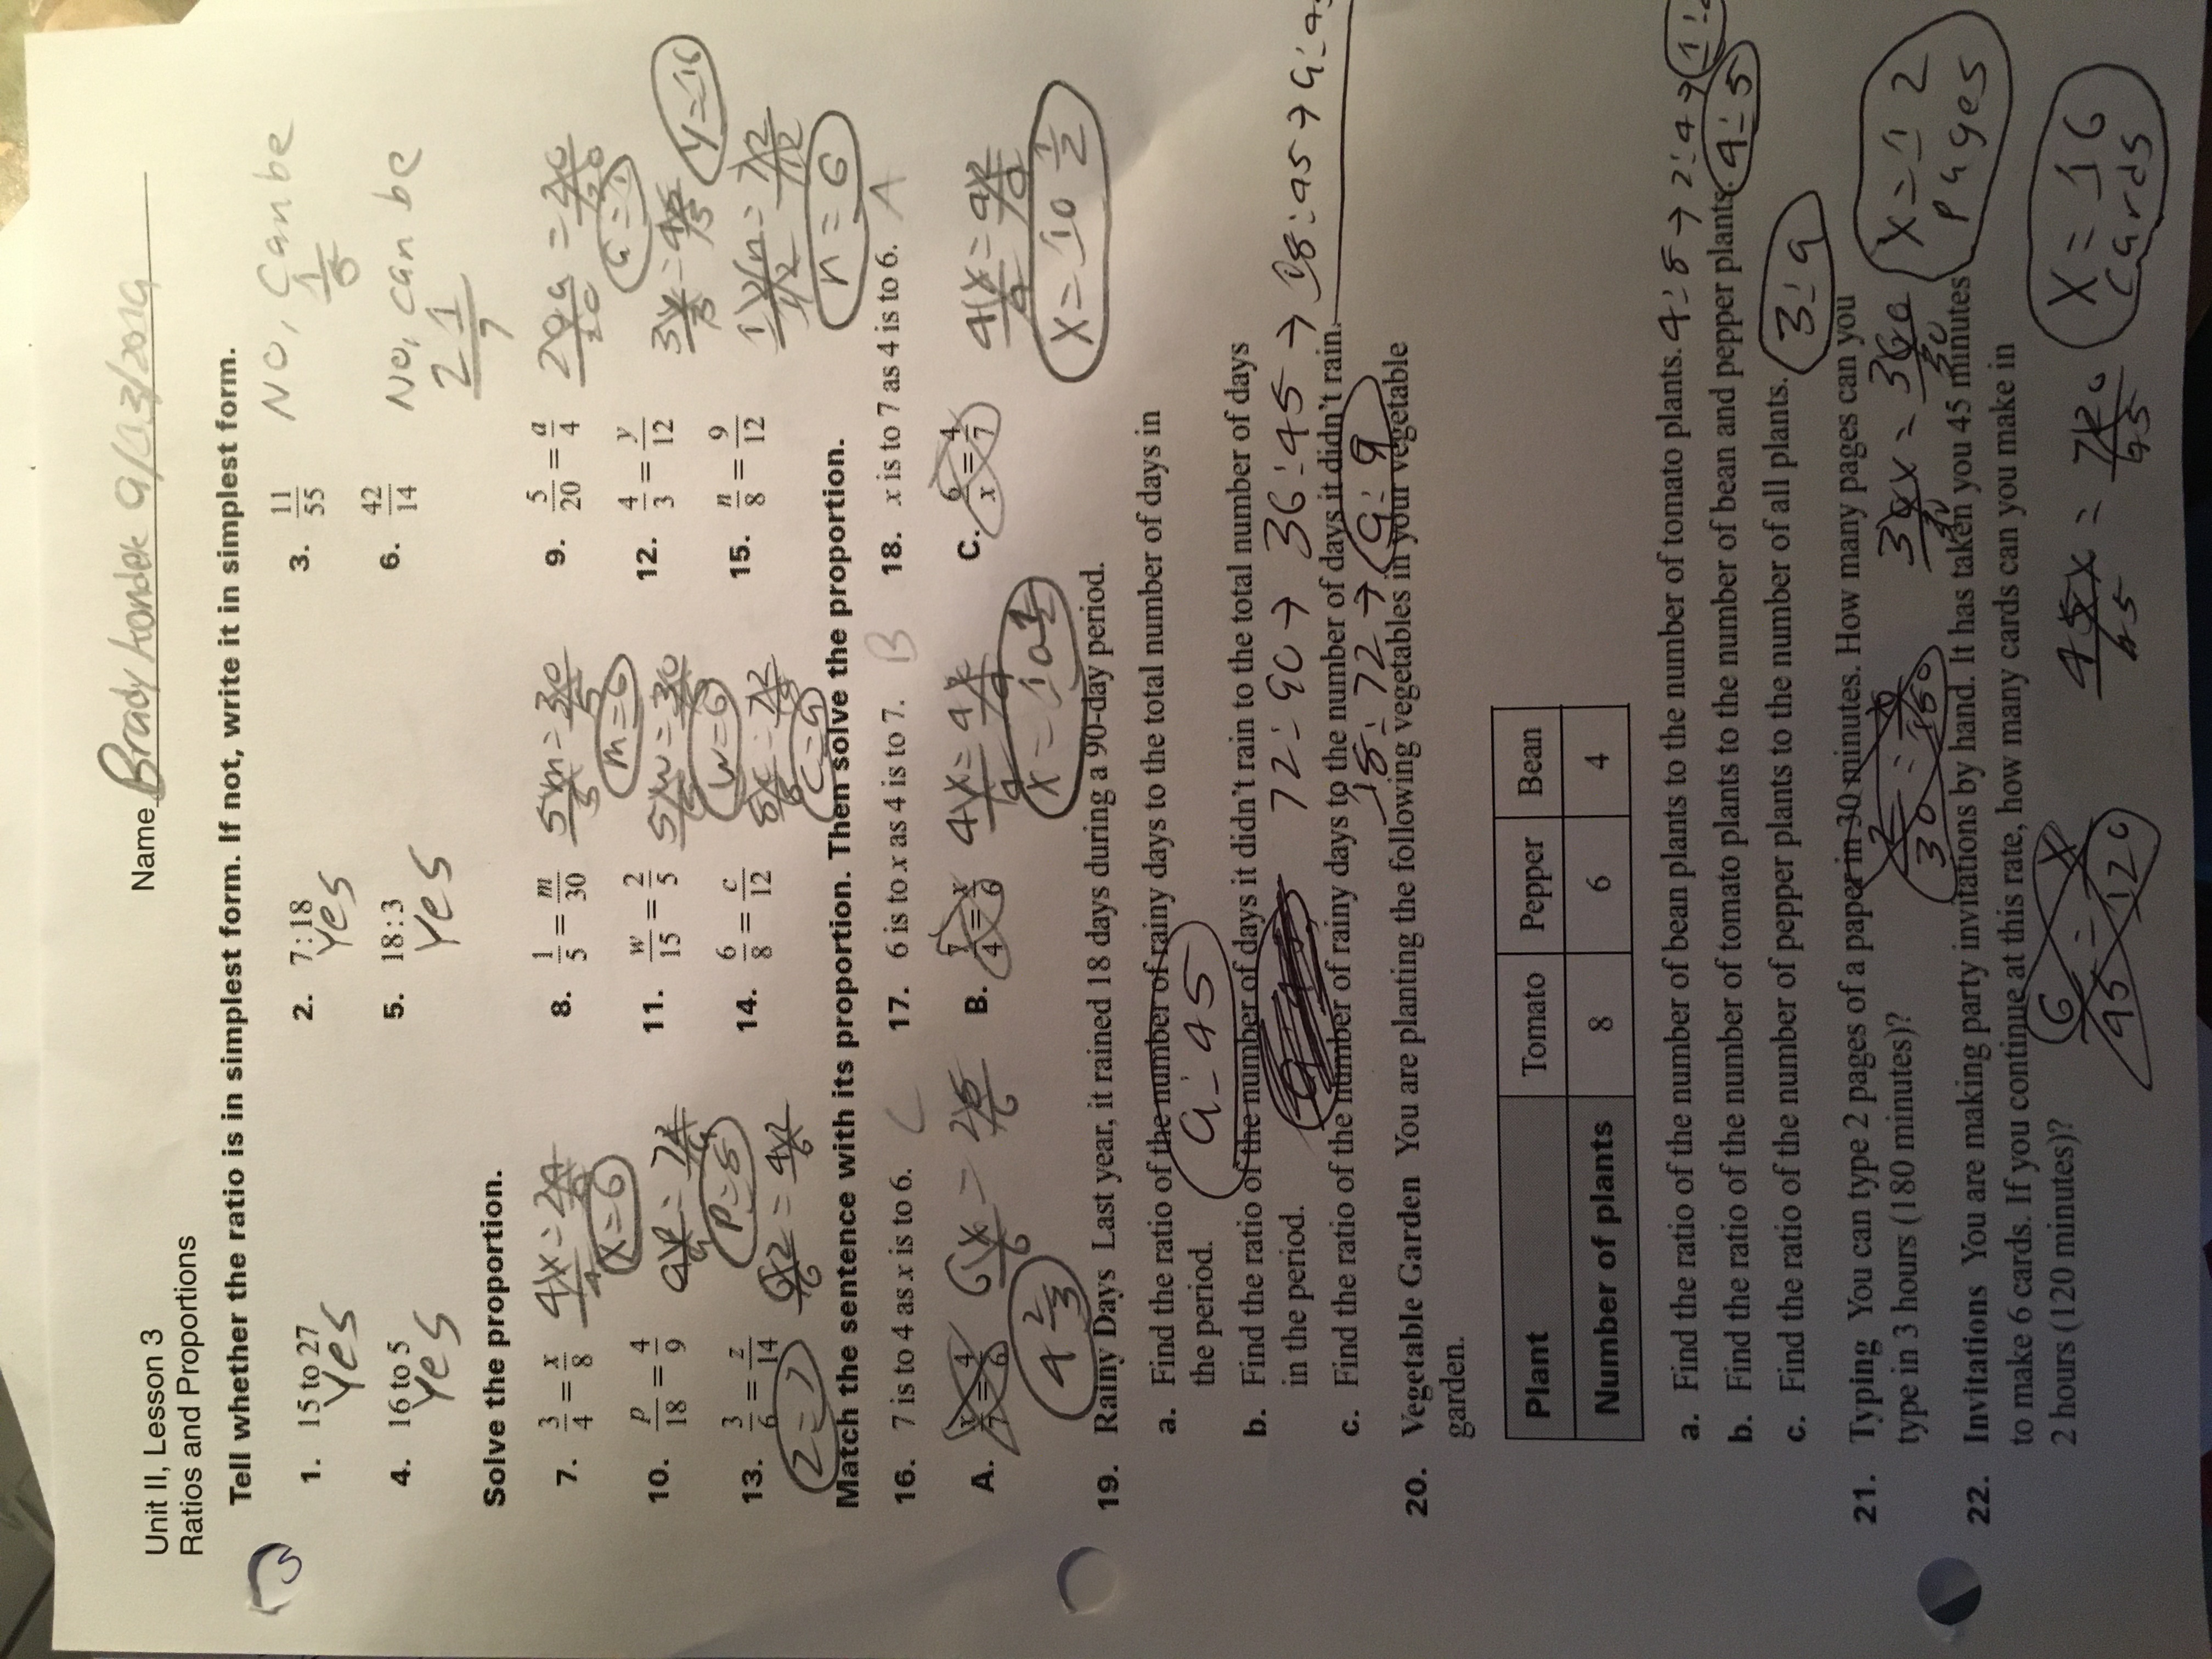 Unit II, Lesson 3
Name Brady Kondek 9/13/2019
Ratios and Proportions
Tell whether the ratio is in simplest form. If not, write it in simplest form.
1. 15 to 27 2. 7:18 3. 11/55 No, Can be
Yes Yes 1/5
4. 16 to 5 5. 18:3 6. 42/14 No, can be
Yes Yes 21/7
Solve the proportion.
7. 3/4 = x/8 4x = 24 8. 1/5 = m/30 5m = 30 9. 5/20 = a/4 20a = 20
x=6 m=6 a=1
10. p/18 = 4/9 9p = 72 11. w/15 = 2/5 5w = 30 12. 4/3 = y/12 3y = 48 y=16
p=8 w=6
13. 3/6 = z/14 6z = 42 14. 6/8 = c/12 8c = 72 15. n/8 = 9/12 12n = 72
z=7 c=9 n=6
Match the sentence with its proportion. Then solve the proportion.
16. 7 is to 4 as x is to 6. C 17. 6 is to x as 4 is to 7. B 18. x is to 7 as 4 is to 6. A
A. x/7 = 4/6 6x = 28 B. 7/4 = x/6 4x = 42 C. 6/x = 4/7 4x = 42
4 2/3 x = 10 1/2 x = 10 1/2
19. Rainy Days Last year, it rained 18 days during a 90-day period.
a. Find the ratio of the number of rainy days to the total number of days in
the period. 9:45
b. Find the ratio of the number of days it didn't rain to the total number of days
in the period. 72:90 → 36:45 → 18:45 →
c. Find the ratio of the number of rainy days to the number of days it didn't rain.
18:72 → 9:9
20. Vegetable Garden You are planting the following vegetables in your vegetable
garden.
Plant Tomato Pepper Bean
Number of plants 8 6 4
a. Find the ratio of the number of bean plants to the number of tomato plants. 4:8 → 2:4 → 1:
b. Find the ratio of the number of tomato plants to the number of bean and pepper plants. 4:5
c. Find the ratio of the number of pepper plants to the number of all plants. 3:9
21. Typing You can type 2 pages of a paper in 30 minutes. How many pages can you
type in 3 hours (180 minutes)? 2/30 = x/180 30x/30 = 360/30 x = 12
pages
22. Invitations You are making party invitations by hand. It has taken you 45 minutes
to make 6 cards. If you continue at this rate, how many cards can you make in
2 hours (120 minutes)? 6/45 = x/120 45x/45 = 720/45 x = 16
cards